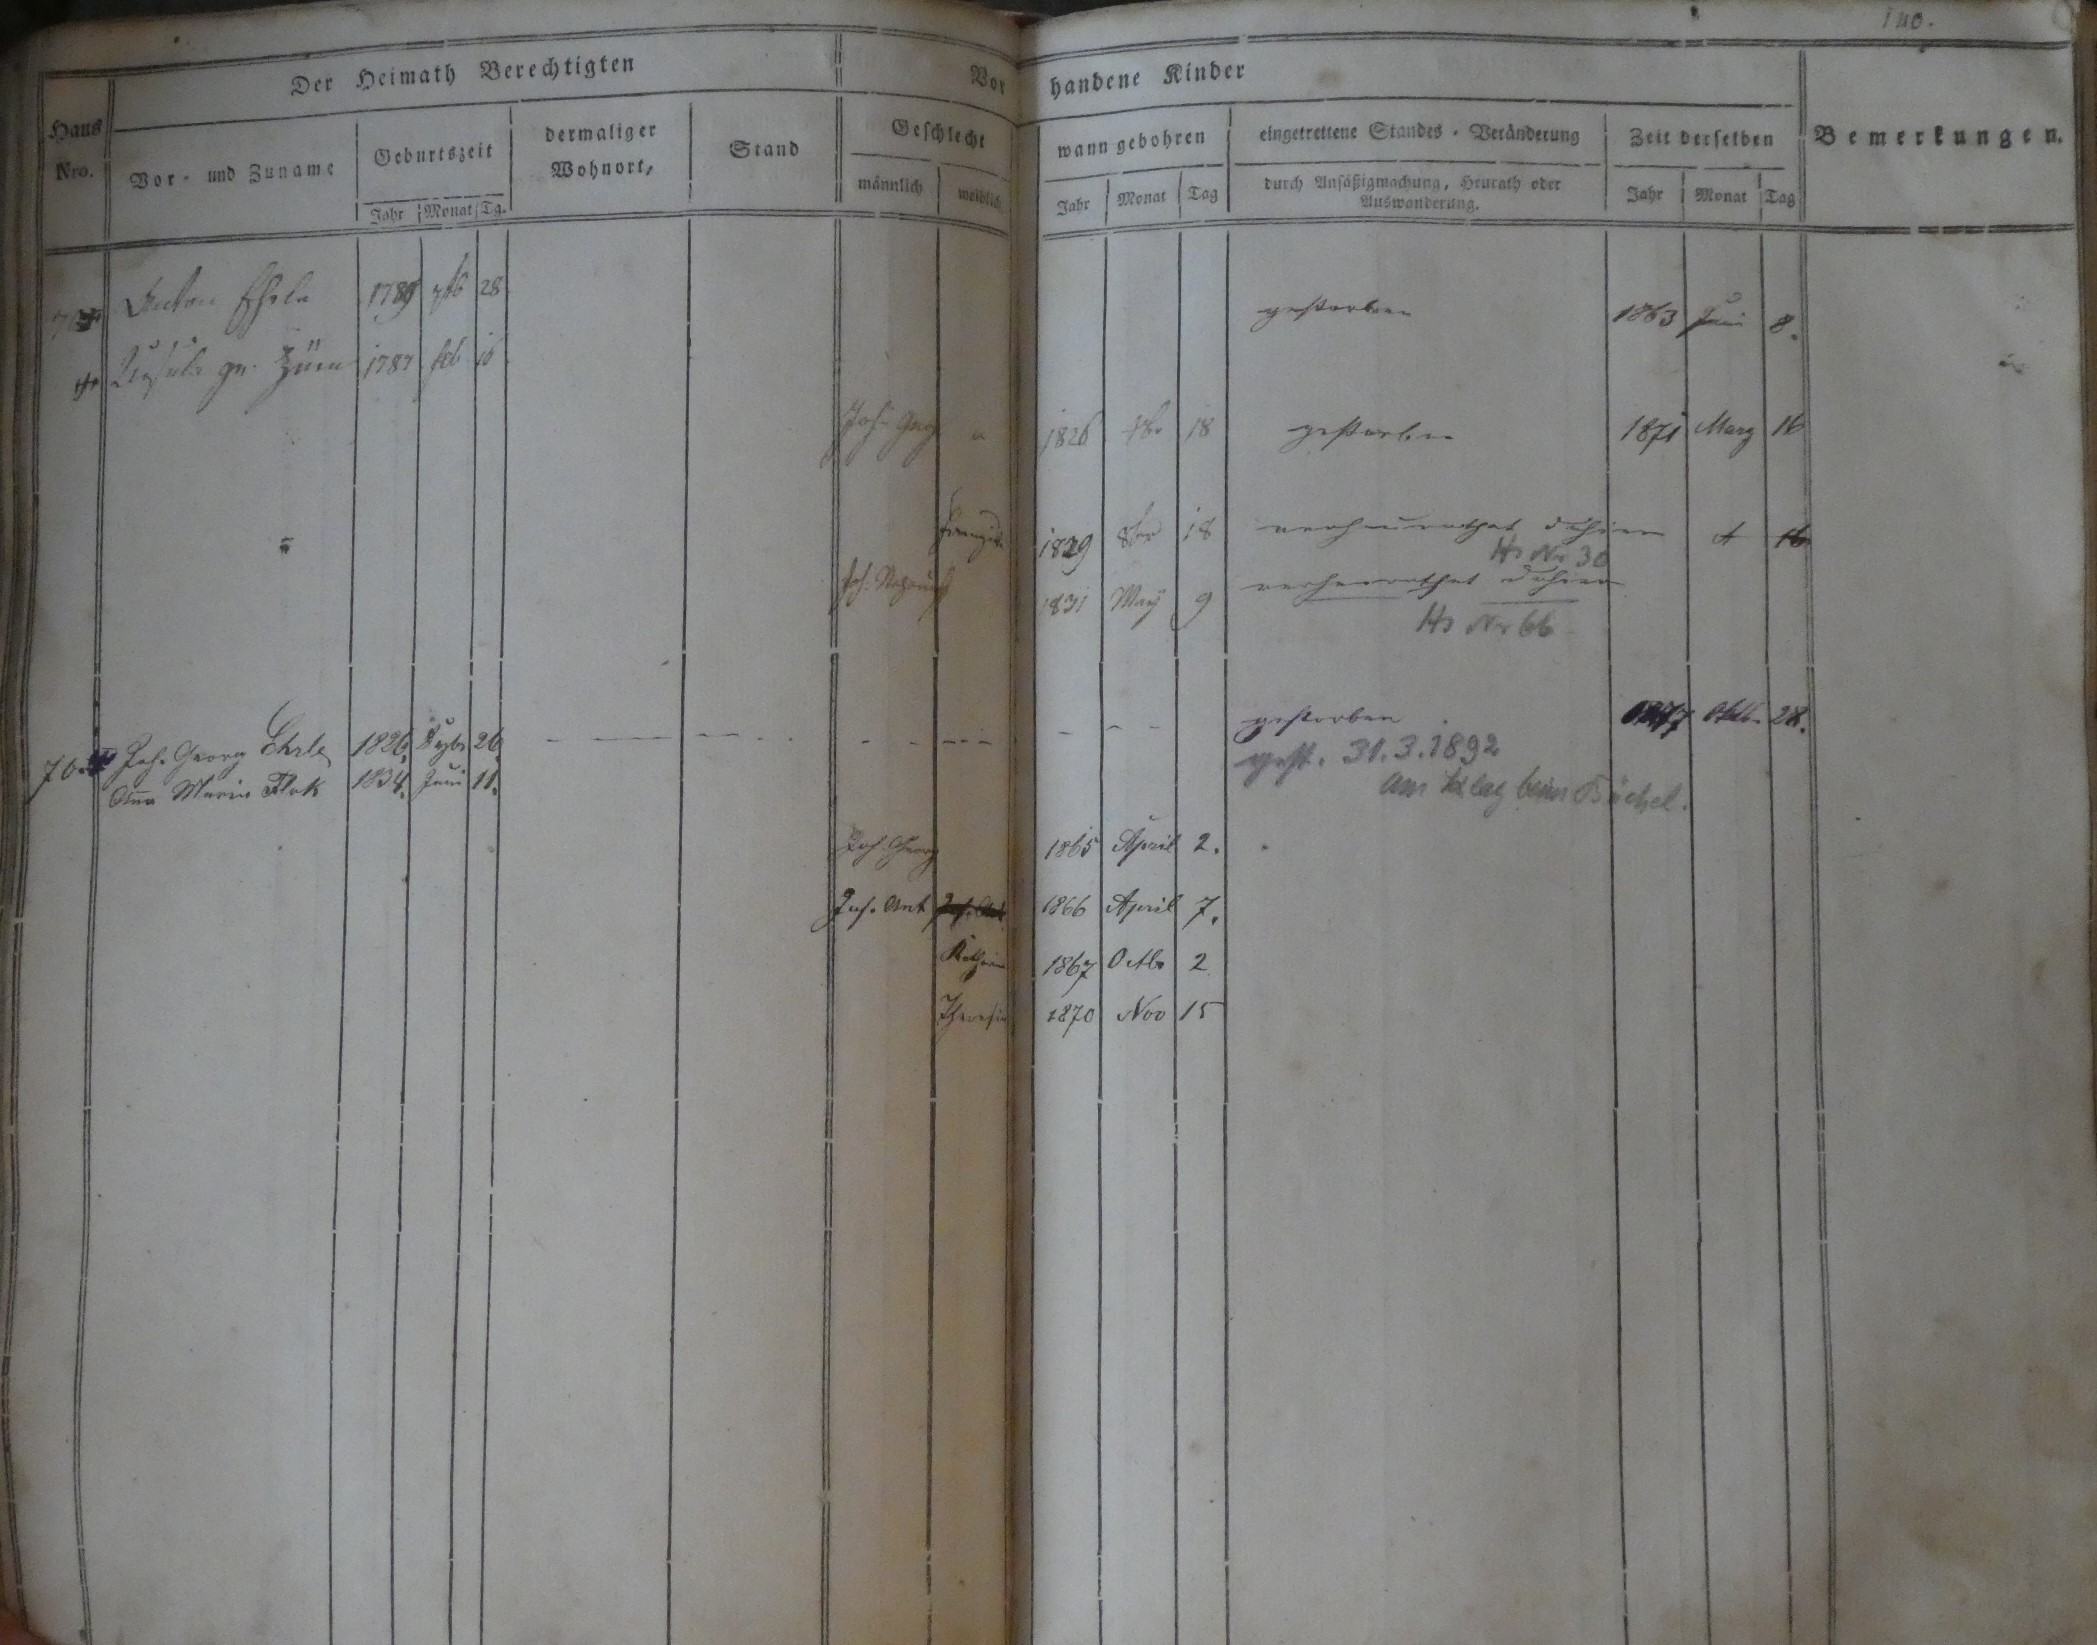 140.
Der Heimath Berechtigten
Vorhandene Kinder
Haus Nro.
Vor- und Zuname
Geburtszeit
Jahr Monat Tg.
dermaliger Wohnort,
Stand
Geschlecht
männlich weiblich
wann gebohren
Jahr Monat Tag
eingetrettene Standes-Veränderung
durch Ansäßigmachung, Heurath oder
Auswanderung.
Zeit derselben
Jahr Monat Tag
Bemerkungen.
Anton Ehrle 1789 7tb 28 gestorben 1863 Juni 8.
Ursula 1787 feb 16
Joh. Georg 1826 18 gestorben 1871 Marz 16
Franziska 1829 8br 18 verheurathet dahier
Hs Nr 30
Joh. 1831 May 9 verheurathet dahier
Hs Nr 66
70. Joh. Georg Ehrle 1826. 26. gestorben 1877 Oktb. 28.
Anna Maria Flok 1834. Juni 11. gest. 31.3.1892
am beim Büchel.
Joh. Georg 1865 April 2.
Joh. Ant 1866 April 7.
Katharina 1867 Octb 2
Theresia 1870 Nov 15